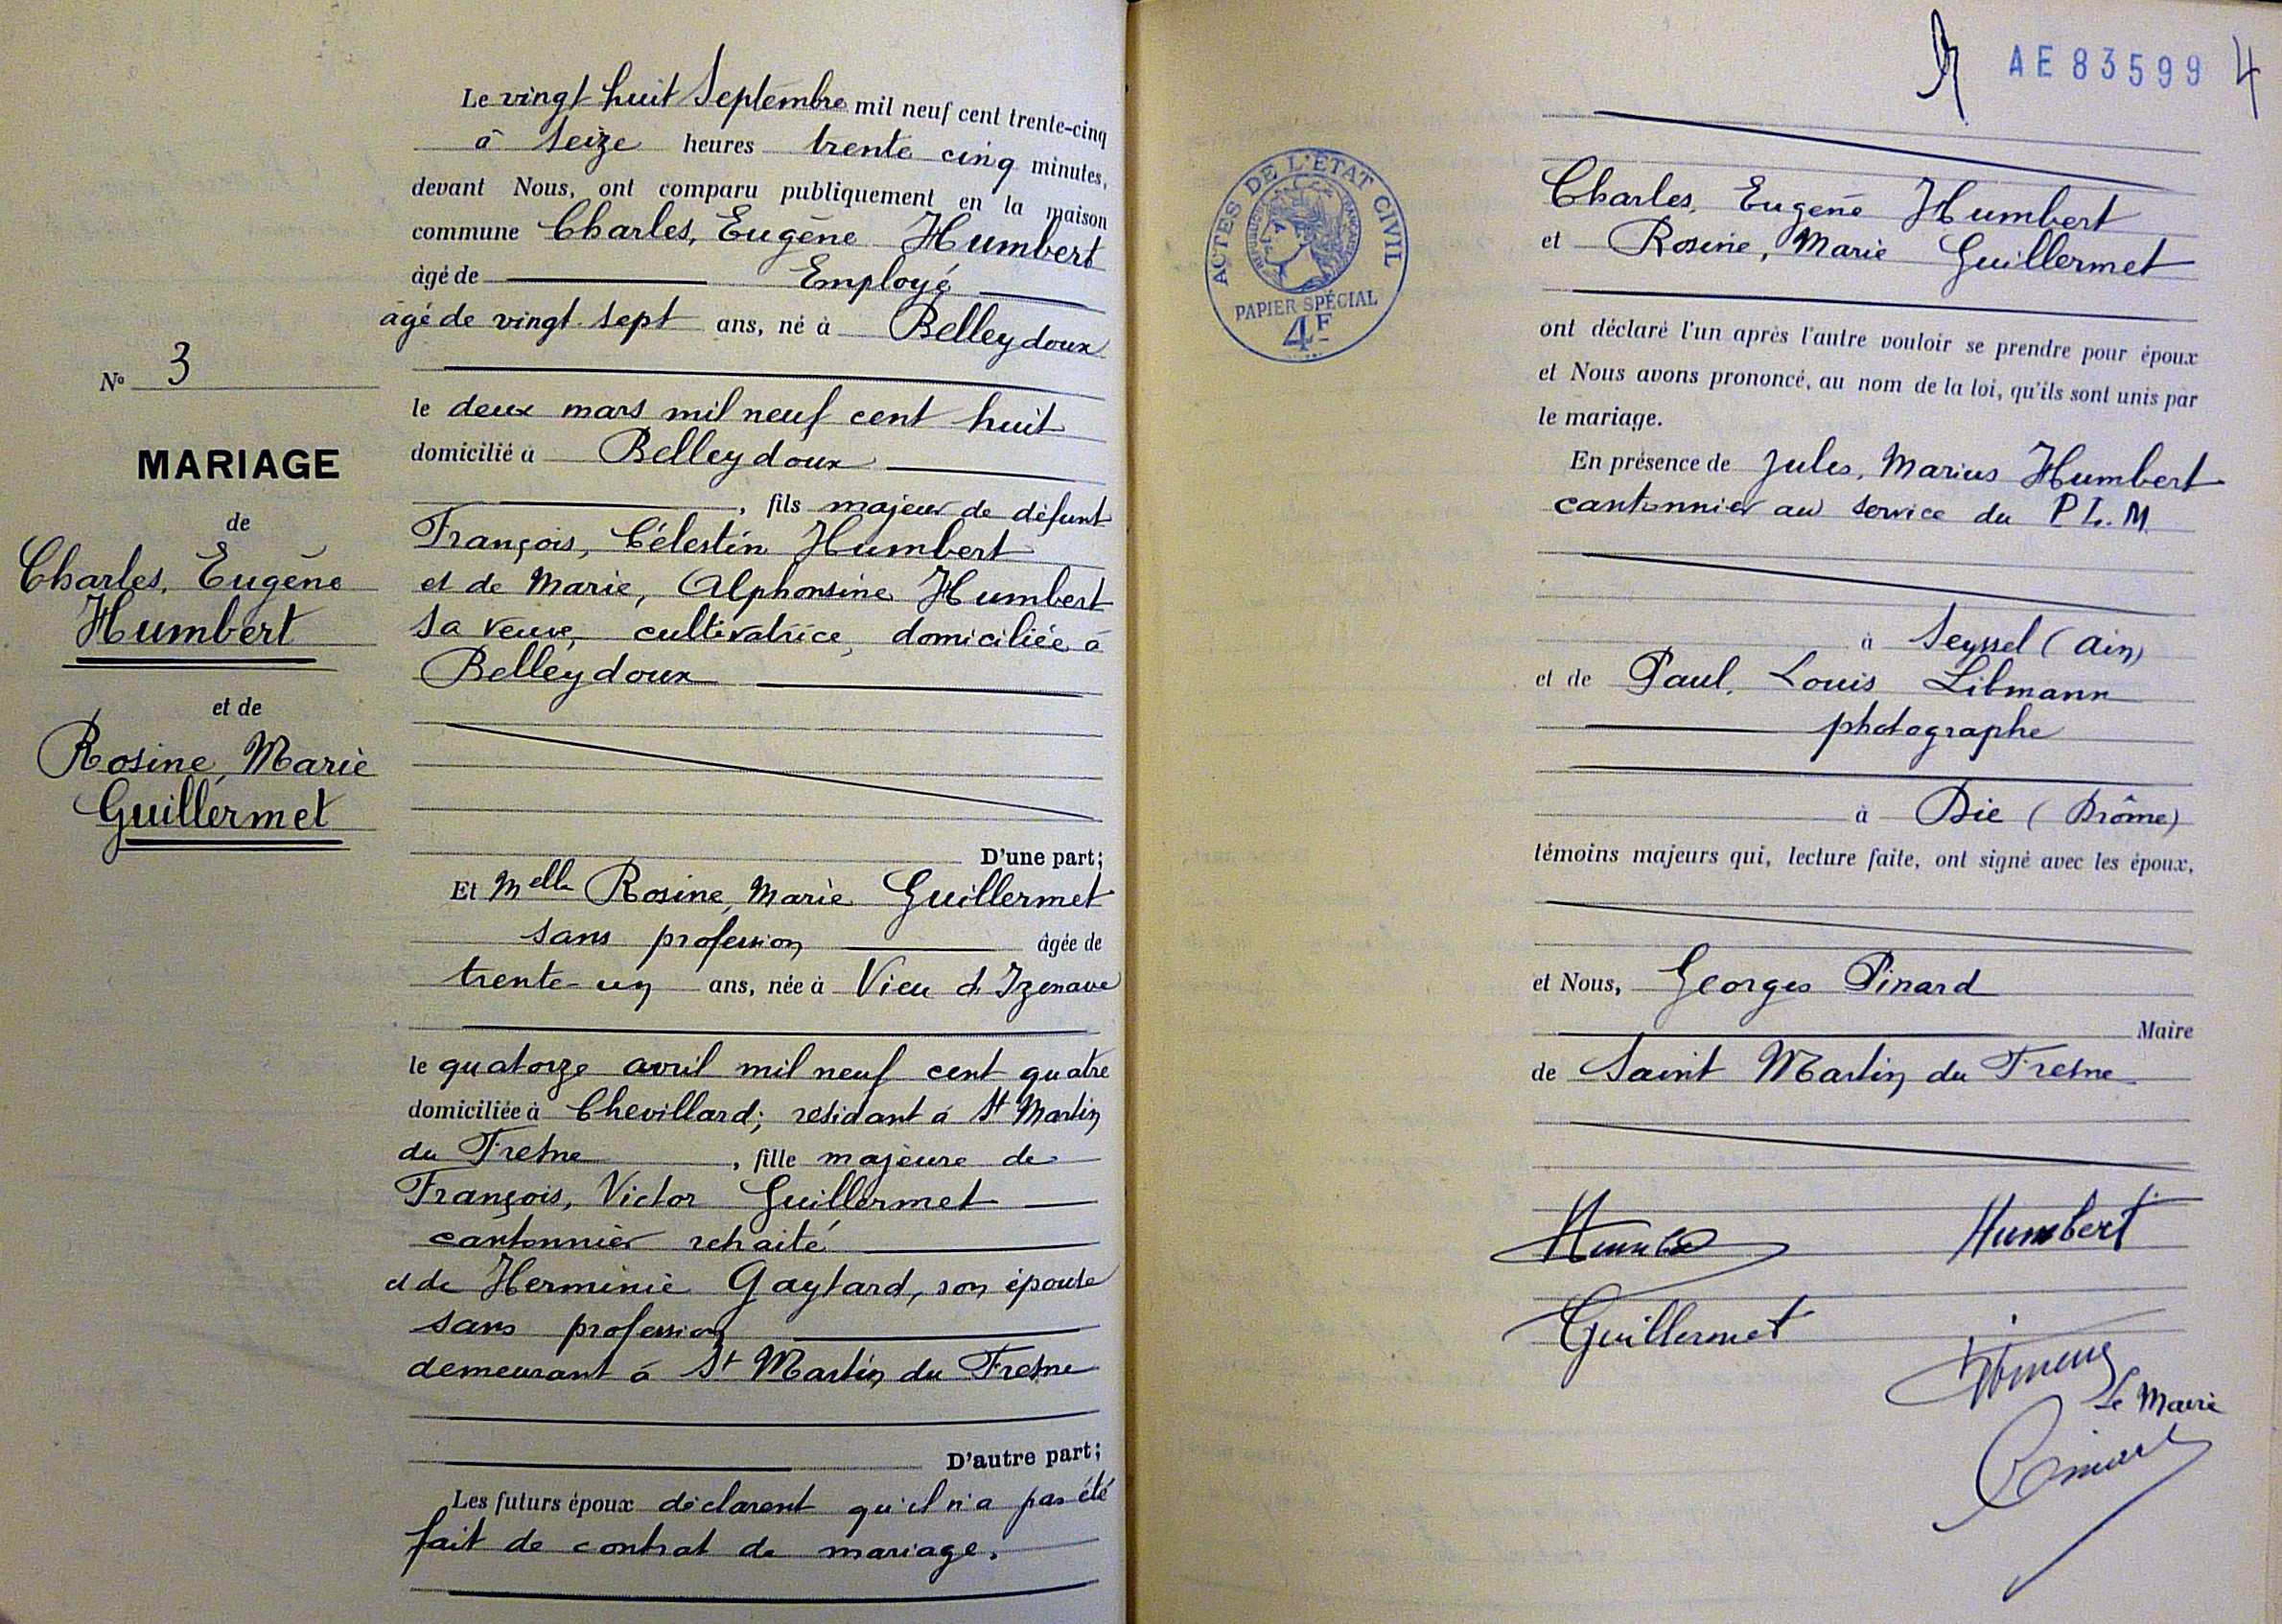 N° 3
MARIAGE
de
Charles, Eugène
Humbert
et de
Rosine, Marie
Guillermet
Le vingt huit Septembre mil neuf cent trente-cinq
à seize heures trente cinq minutes,
devant Nous, ont comparu publiquement en la maison
commune Charles, Eugène Humbert
âgé de Employé
âgé de vingt sept ans, né à Belleydoux
le deux mars mil neuf cent huit
domicilié à Belleydoux
, fils majeur de défunt
François, Célestin Humbert
et de Marie, Alphonsine Humbert
sa veuve, cultivatrice, domiciliée à
Belleydoux
D'une part;
Et Melle Rosine, Marie Guillermet
sans profession âgée de
trente-un ans, née à Vieu d'Izenave
le quatorze avril mil neuf cent quatre
domiciliée à Chevillard; résidant à St Martin
du Fresne, fille majeure de
François, Victor Guillermet
cantonnier retraité
et de Herminie Gaytard, son épouse
sans profession
demeurant à St Martin du Fresne
D'autre part;
Les futurs époux déclarent qu'il n'a pas été
fait de contrat de mariage.
AE83599 4
ACTES DE L'ÉTAT CIVIL
RÉPUBLIQUE FRANÇAISE
PAPIER SPÉCIAL
4F
Charles, Eugène Humbert
et Rosine, Marie Guillermet
ont déclaré l'un après l'autre vouloir se prendre pour époux
et Nous avons prononcé, au nom de la loi, qu'ils sont unis par
le mariage.
En présence de Jules, Marius Humbert
cantonnier au service du P.L.M.
à Seyssel (Ain)
et de Paul, Louis Libmann
photographe
à Die (Drôme)
témoins majeurs qui, lecture faite, ont signé avec les époux,
et Nous, Georges Pinard
Maire
de Saint Martin du Fresne
Humbert Humbert
Guillermet
Le Maire
Pinard